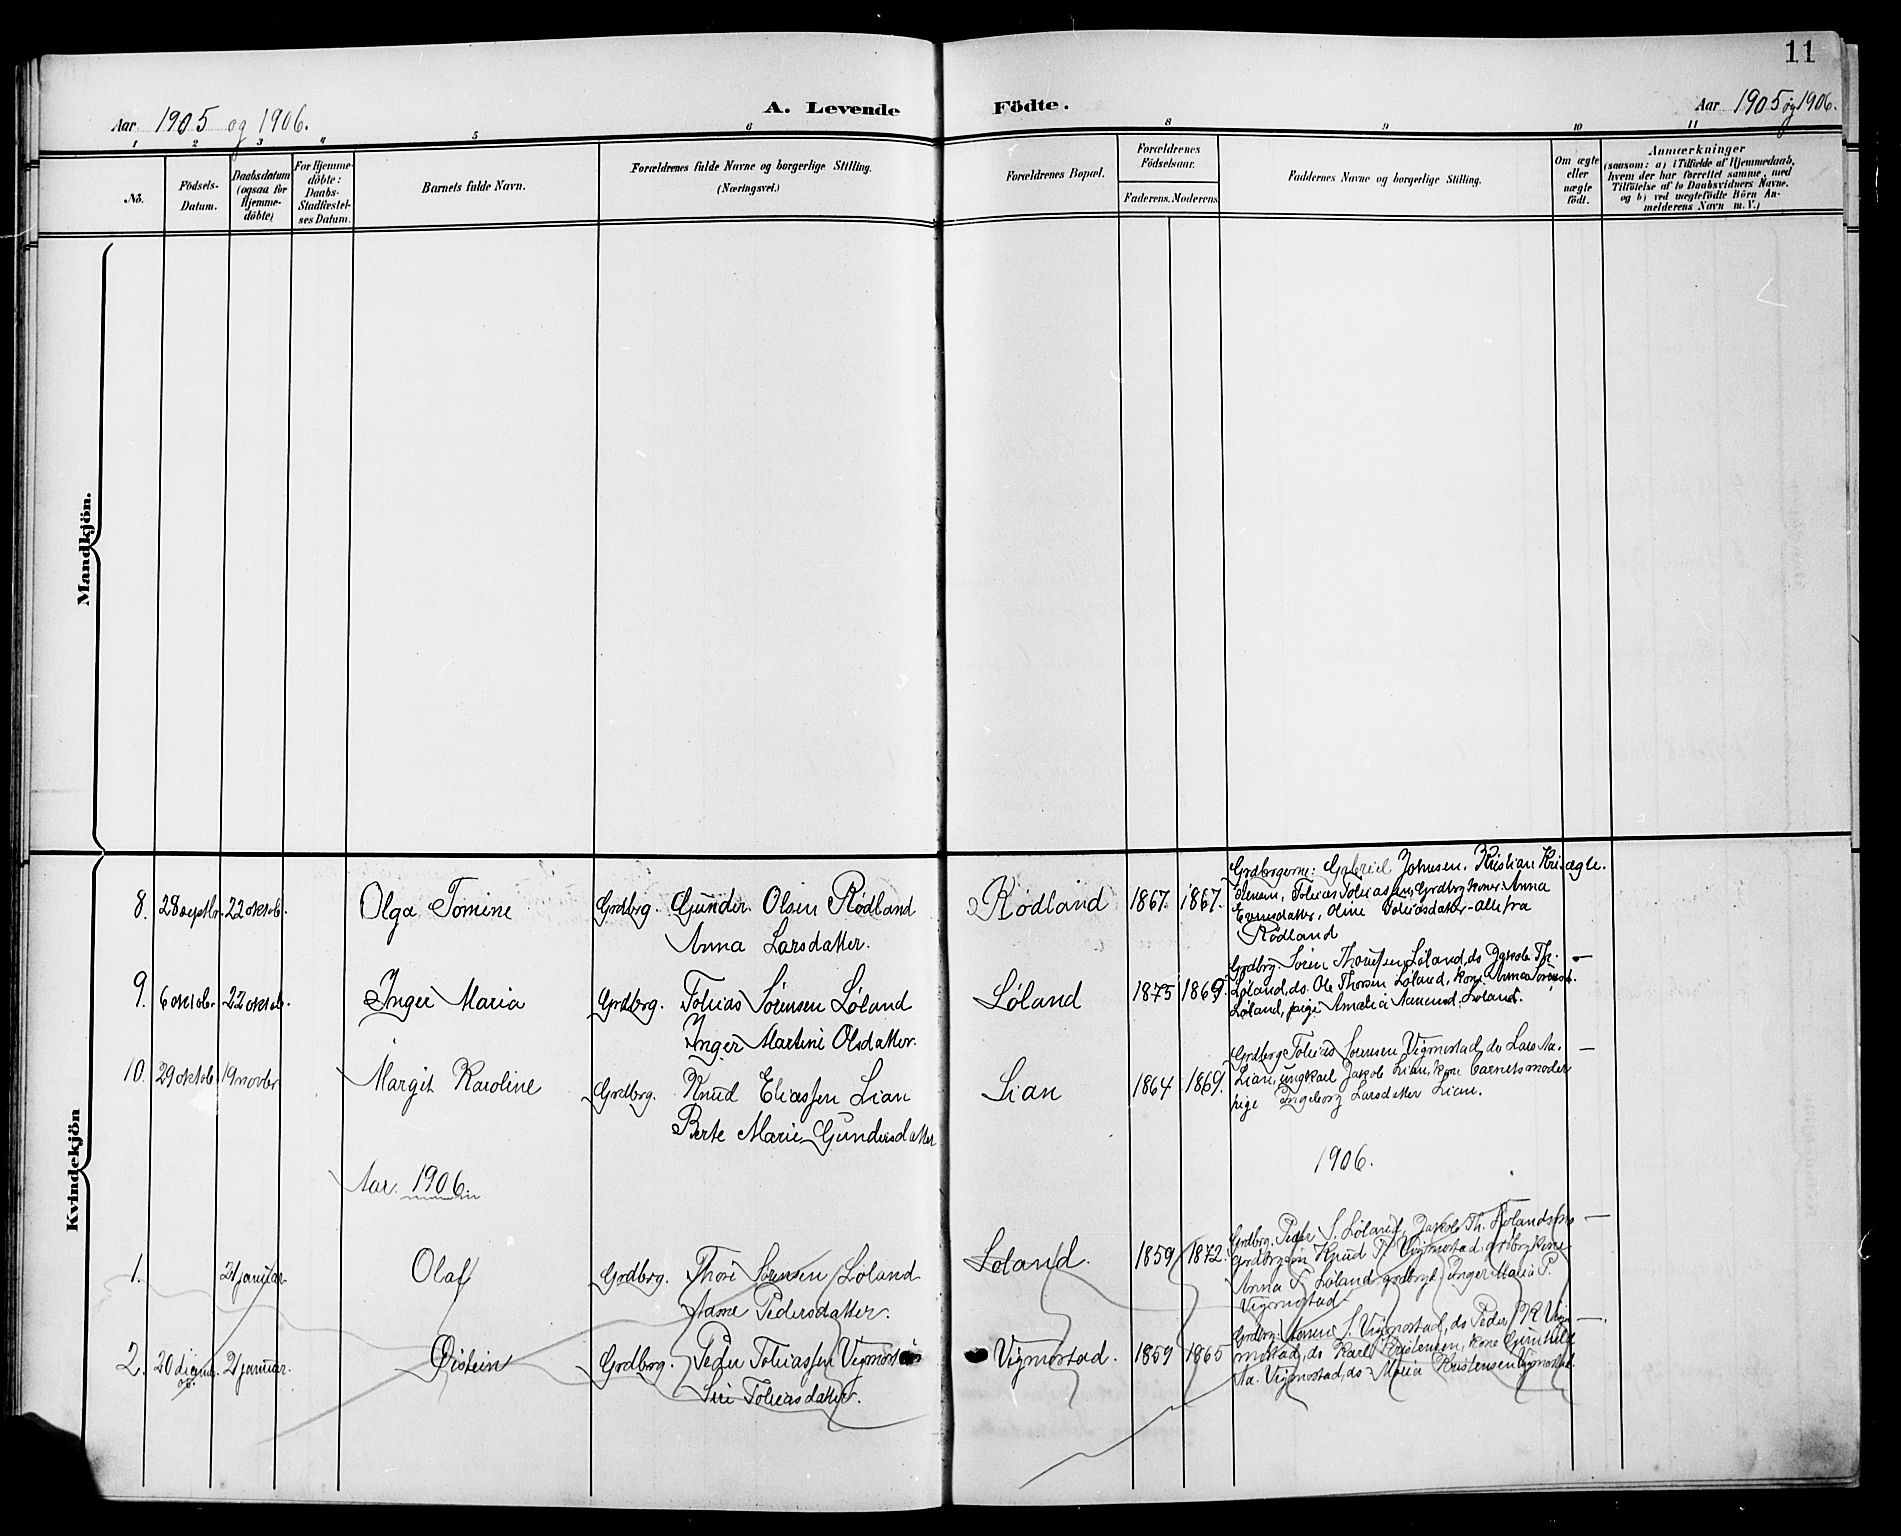 11
Aar 1905 og 1906.
A. Levende Födte.
Aar 1905 og 1906.
1 2 3 4 5 6 8 9 10 11
No.
Födsels-
Datum.
Daabsdatum
(ogsaa for
Hjemme-
döbte)
For Hjemme-
döbte:
Daabs-
Stadfæstel-
ses Datum.
Barnets fulde Navn.
Forældrenes fulde Navne og borgerlige Stilling.
(Næringsvei.)
Forældrenes Bopæl.
Forældrenes
Födselsaar.
Faderens. Moderens.
Faddernes Navne og borgerlige Stilling.
Om ægte
eller
uægte
födt.
Anmærkninger
(saasom: a) i Tilfælde af Hjemmedaab,
hvem der har forrettet samme, med
Tilföielse af to Daabsvidners Navne.
og b) ved uægtefödte Börn An-
melderens Navn m. V.)
Mandkjön.
Kvindekjön
8. 28 septbr. 22 oktob. Olga Tomine Grdbrg. Gunder Olsen Rødland
Anna Larsdatter.
Rødland 1867. 1867.
Grdbrgerne: Gabriel Johnsen, Kristian Kri- ægte.
stensen, Tobias Tobiassen, Grdbrgkoner Anna
Evensdatter, Oline Tobiasdatter - alle fra
Rødland
9. 6 oktob. 22 oktob. Inger Maria Grdbrg. Tobias Sørensen Løland
Inger Martine Olsdatter.
Løland 1875 1869.
Grdbrg. Søren Thorsen Løland, do Jakob Th. —
Løland, do. Ole Thorsen Løland, kone Anna Sørensd.
Løland, pige Amalia Aanensd. Løland.
10. 29 oktob. 19 novbr Margit Karoline Grdbrg. Knud Eliassen Lian
Berte Marie Gundersdatter
Lian 1864 1869.
Grdbrg Tobias Sørensen Vigmostad, do Lars Aa. —
Lian, ungkarl Jakob Lian, kone barnets moder
pige Ingeborg Larsdatter Lian.
Aar. 1906.
1906.
1. 21 januar Olaf Grdbrg. Thore Sørensen Løland
Aasne Pedersdatter.
Løland. 1859 1872.
Grdbrg. Peder S. Løland, Jakob Th. Løland —
Grdbrgsøn Knud P. Vigmostad, grdbrgkone
Anna T. Løland grdbrgd. Inger Maria P.
Vigmostad.
2. 20 21 januar. Øistein Grdbrg. Peder Tobiassen Vigmostad
Siri Tobiasdatter.
Vigmostad. 1859 1865
Grdbrg. Søren S. Vigmostad, do Peder K Vig- —
mostad, do Karl Kristensen, kone Gunhild
Aa. Vigmostad, do Maria Kristensen Vigmostad.